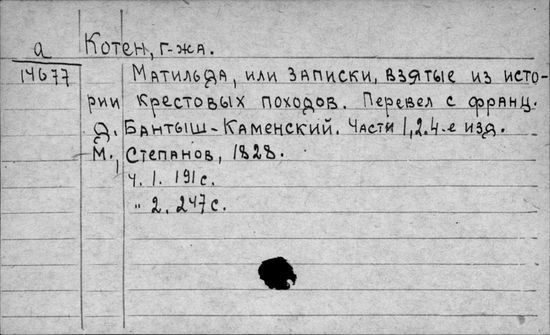 а Котен, г-жа.
14677 Матильда, или записки, взятые из исто-
рии крестовых походов. Перевел с франц.
Д. Бантыш-Каменский. Части 1,2.4-е изд.
М., Степанов, 1828.
Ч. 1. 191 с.
" 2. 247 с.